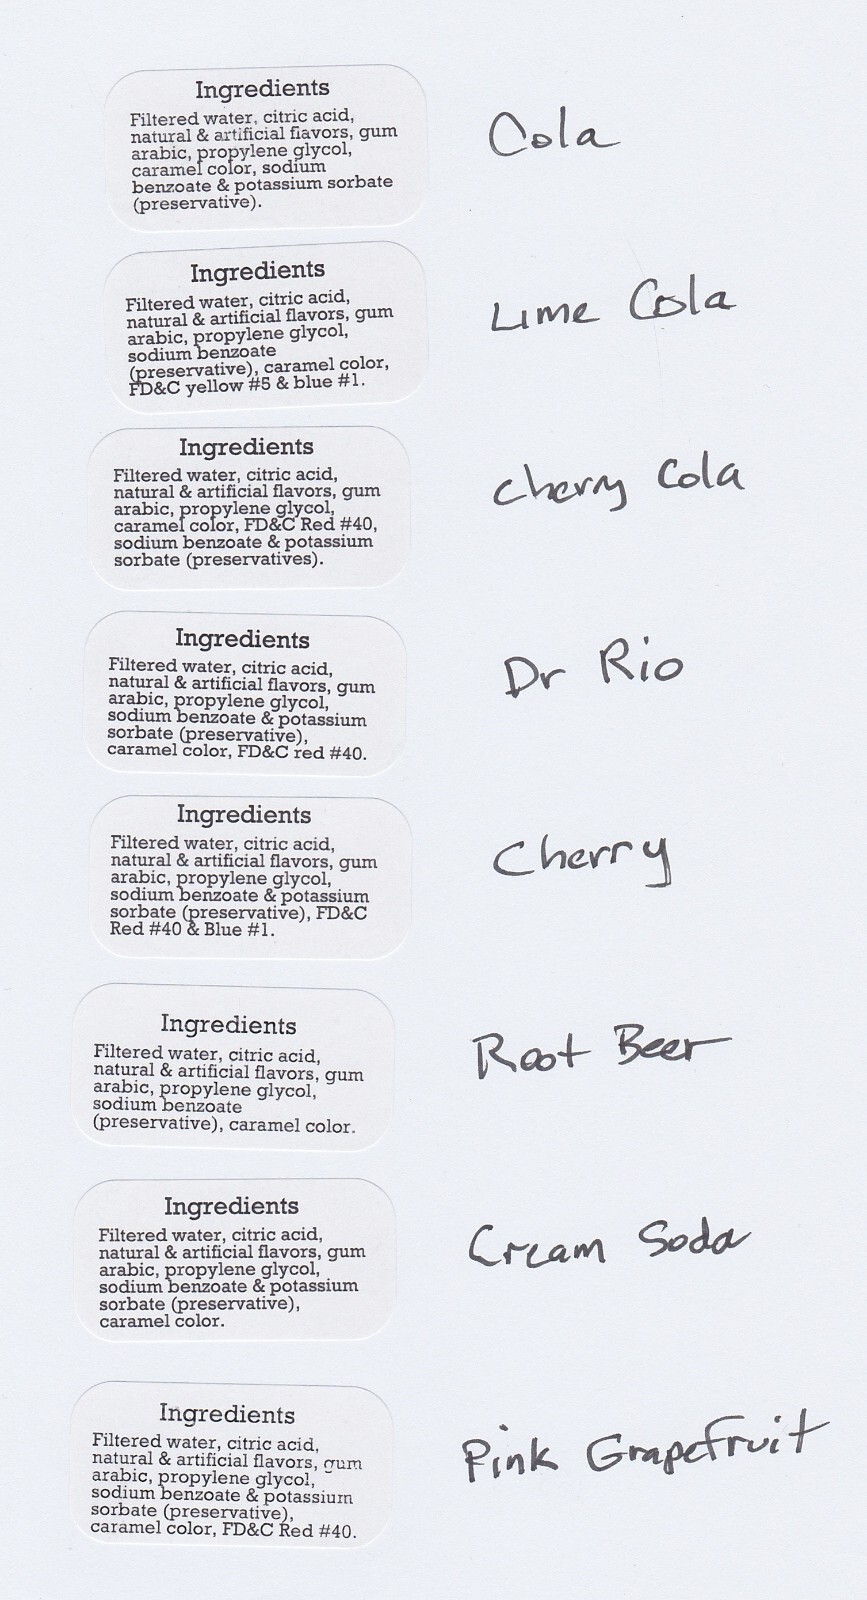 Ingredients
Filtered water, citric acid,
natural & artificial flavors, gum
arabic, propylene glycol,
caramel color, sodium
benzoate & potassium sorbate
(preservative).
Cola
Ingredients
Filtered water, citric acid,
natural & artificial flavors, gum
arabic, propylene glycol,
sodium benzoate
(preservative), caramel color,
FD&C yellow #5 & blue #1.
Lime Cola
Ingredients
Filtered water, citric acid,
natural & artificial flavors, gum
arabic, propylene glycol,
caramel color, FD&C Red #40,
sodium benzoate & potassium
sorbate (preservatives).
Cherry Cola
Ingredients
Filtered water, citric acid,
natural & artificial flavors, gum
arabic, propylene glycol,
sodium benzoate & potassium
sorbate (preservative),
caramel color, FD&C red #40.
Dr Rio
Ingredients
Filtered water, citric acid,
natural & artificial flavors, gum
arabic, propylene glycol,
sodium benzoate & potassium
sorbate (preservative), FD&C
Red #40 & Blue #1.
Cherry
Ingredients
Filtered water, citric acid,
natural & artificial flavors, gum
arabic, propylene glycol,
sodium benzoate
(preservative), caramel color.
Root Beer
Ingredients
Filtered water, citric acid,
natural & artificial flavors, gum
arabic, propylene glycol,
sodium benzoate & potassium
sorbate (preservative),
caramel color.
Cream Soda
Ingredients
Filtered water, citric acid,
natural & artificial flavors, gum
arabic, propylene glycol,
sodium benzoate & potassium
sorbate (preservative),
caramel color, FD&C Red #40.
Pink Grapefruit